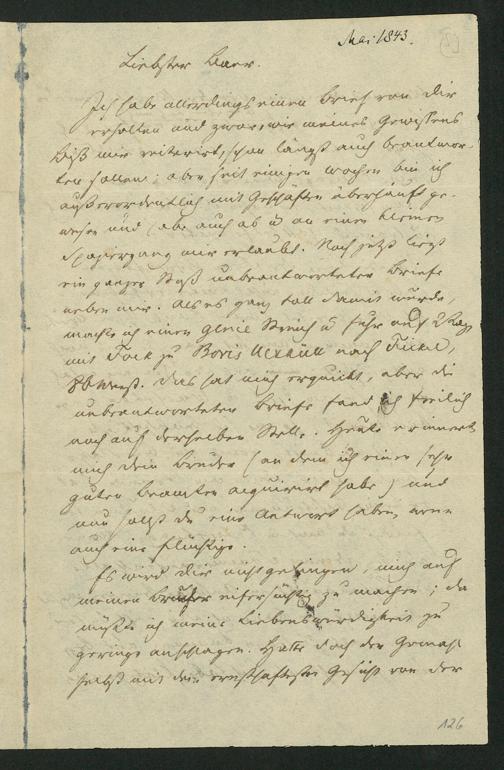 Mai 1843.
Liebster Baer.
Ich habe allerdings einen Brief von Dir
erhalten und zwar, wie meines Gewissens
Biß mir reiterirt, schon längst auch beantwor-
ten sollen; aber seit einigen Wochen bin ich
außerordentlich mit Geschäften überhäuft ge-
wesen und habe auch ab u an einen kleinen
Spaziergang mir erlaubt. Noch jetzt liegt
ein ganzer Stoß unbeantworteter Briefe
neben mir. Als es ganz toll damit wurde,
machte ich einen Genie Streich u fuhr auf 2 Tage
mit Fock zu Boris Uexküll nach Fickel,
80 Werst. Das hat mich erquickt, aber die
unbeantworteten Briefe fand ich freilich
noch auf derselben Stelle. Heute erinnert
mich dein Bruder (an dem ich einen sehr
guten Beamten acquirirt habe) und
nun sollst du eine Antwort haben, wenn
auch eine flüchtige.
Es wird dir nicht gelingen, mich auf
meinen eifersüchtig zu machen; da
müßte ich meine Liebenswürdigkeit zu
geringe anschlagen. Hatte doch der Gemahl
selbst mit dem ernsthaftesten Gesicht von der
126